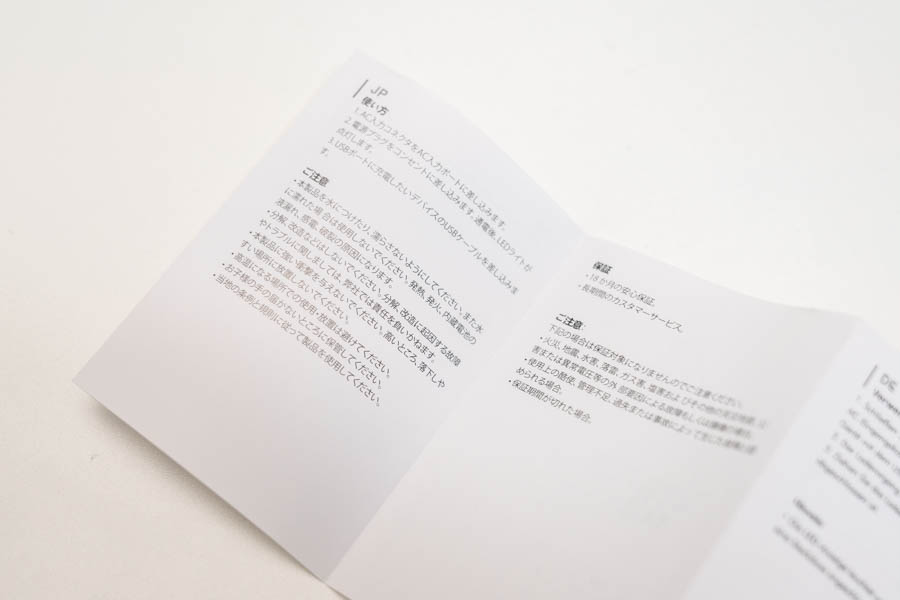 JP
使い方
1. AC入力コネクタをAC入力ポートに差し込みます。
2. 電源プラグをコンセントに差し込みます。通電後、LEDライトが
点灯します。
3. USBポートに充電したいデバイスのUSBケーブルを差し込みま
す。
ご注意
・本製品を水につけたり、濡らさないようにしてください。また水
に濡れた場合は使用しないでください。発熱、発火、内蔵電池の
液漏れ、感電、破裂の原因になります。
・分解、改造などはしないでください。分解、改造に起因する故障
やトラブルに関しましては、弊社では責任を負いかねます。
・本製品に強い衝撃を与えないでください。高いところ、落下しや
すい場所に放置しないでください。
・高温になる場所での使用・放置は避けてください。
・お子様の手の届かないところに保管してください。
・当地の条例と規則に従って製品を使用してください。
保証
・18か月の安心保証。
・長期間のカスタマーサービス。
ご注意
下記の場合は保証対象になりませんのでご注意ください。
・火災、地震、水害、落雷、ガス害、塩害およびその他の天災地変、公
害または異常電圧等の外部要因による故障もしくは損傷の場合。
・使用上の酷使、管理不足、過失または事故によって生じた故障と認
められる場合。
・保証期間が切れた場合。
DE